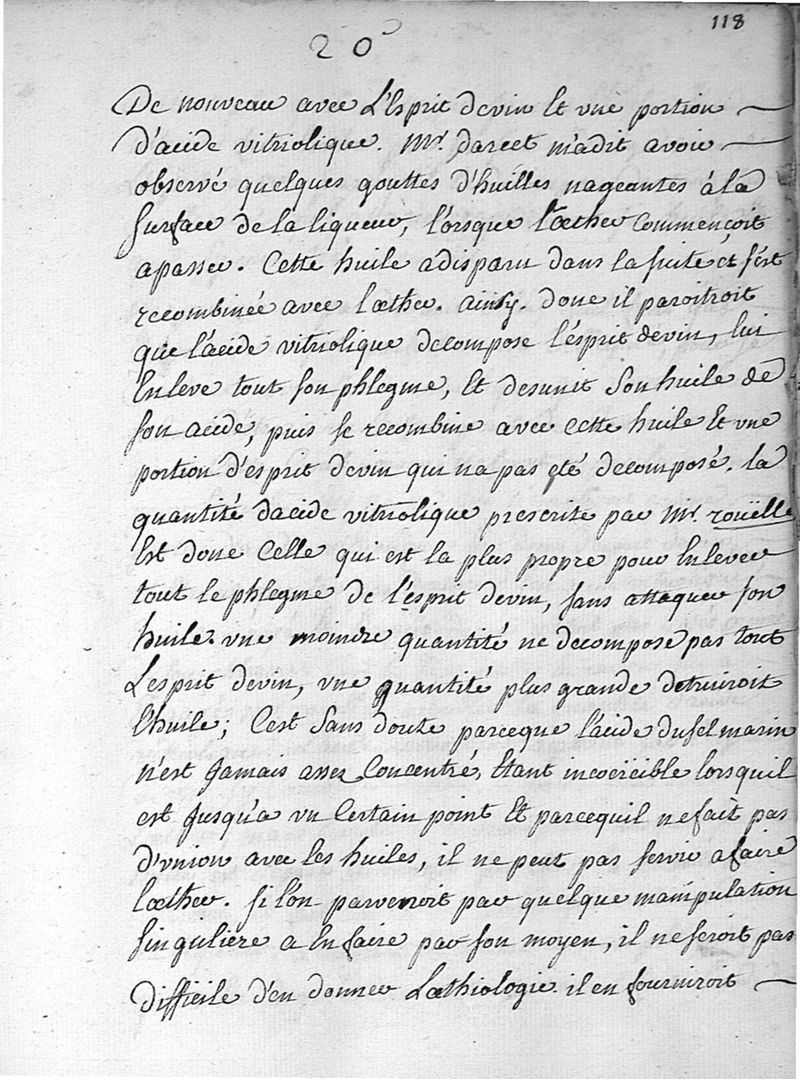 118
20
De nouveau avec L'Esprit devin Et vne portion
D'acide vitriolique. Mr. darcet m'adit avoir
observé quelques gouttes d'huilles nageantes à la
surface de la liqueur, l'orsque l'æther commençoit
apasser. Cette huile adisparu dans la suite et s'est
recombinée avec læther. ainsy. donc il paroitroit
que l'acide vitriolique decompose l'esprit devin, lui
Enleve tout son phlegme, Et desunit Son huile de
son acide, puis se recombine avec cette huile Et vne
portion d'esprit devin qui na pas eté decomposé. la
quantité dacide vitriolique prescrite par Mr. rouëlle
Est donc Celle qui est la plus propre pour Enlever
tout le phlegme de l'esprit devin, sans attaquer son
huile. vne moindre quantité ne decompose pas tout
L'esprit devin, vne quantité plus grande detruiroit
l'huile; C'est Sans doute parceque l'acide dusel marin
n'est Jamais assez Concentré, Etant incoërcible lorsquil
est Jusqu'a vn Certain point Et parcequil nefait pas
D'vnion avec les huiles, il ne peut pas servir afaire
læther. si l'on parvenoit par quelque manipulation
singuliere a En faire par son moyen, il ne seroit pas
difficile d'en donner Læthiologie. il en fourniroit